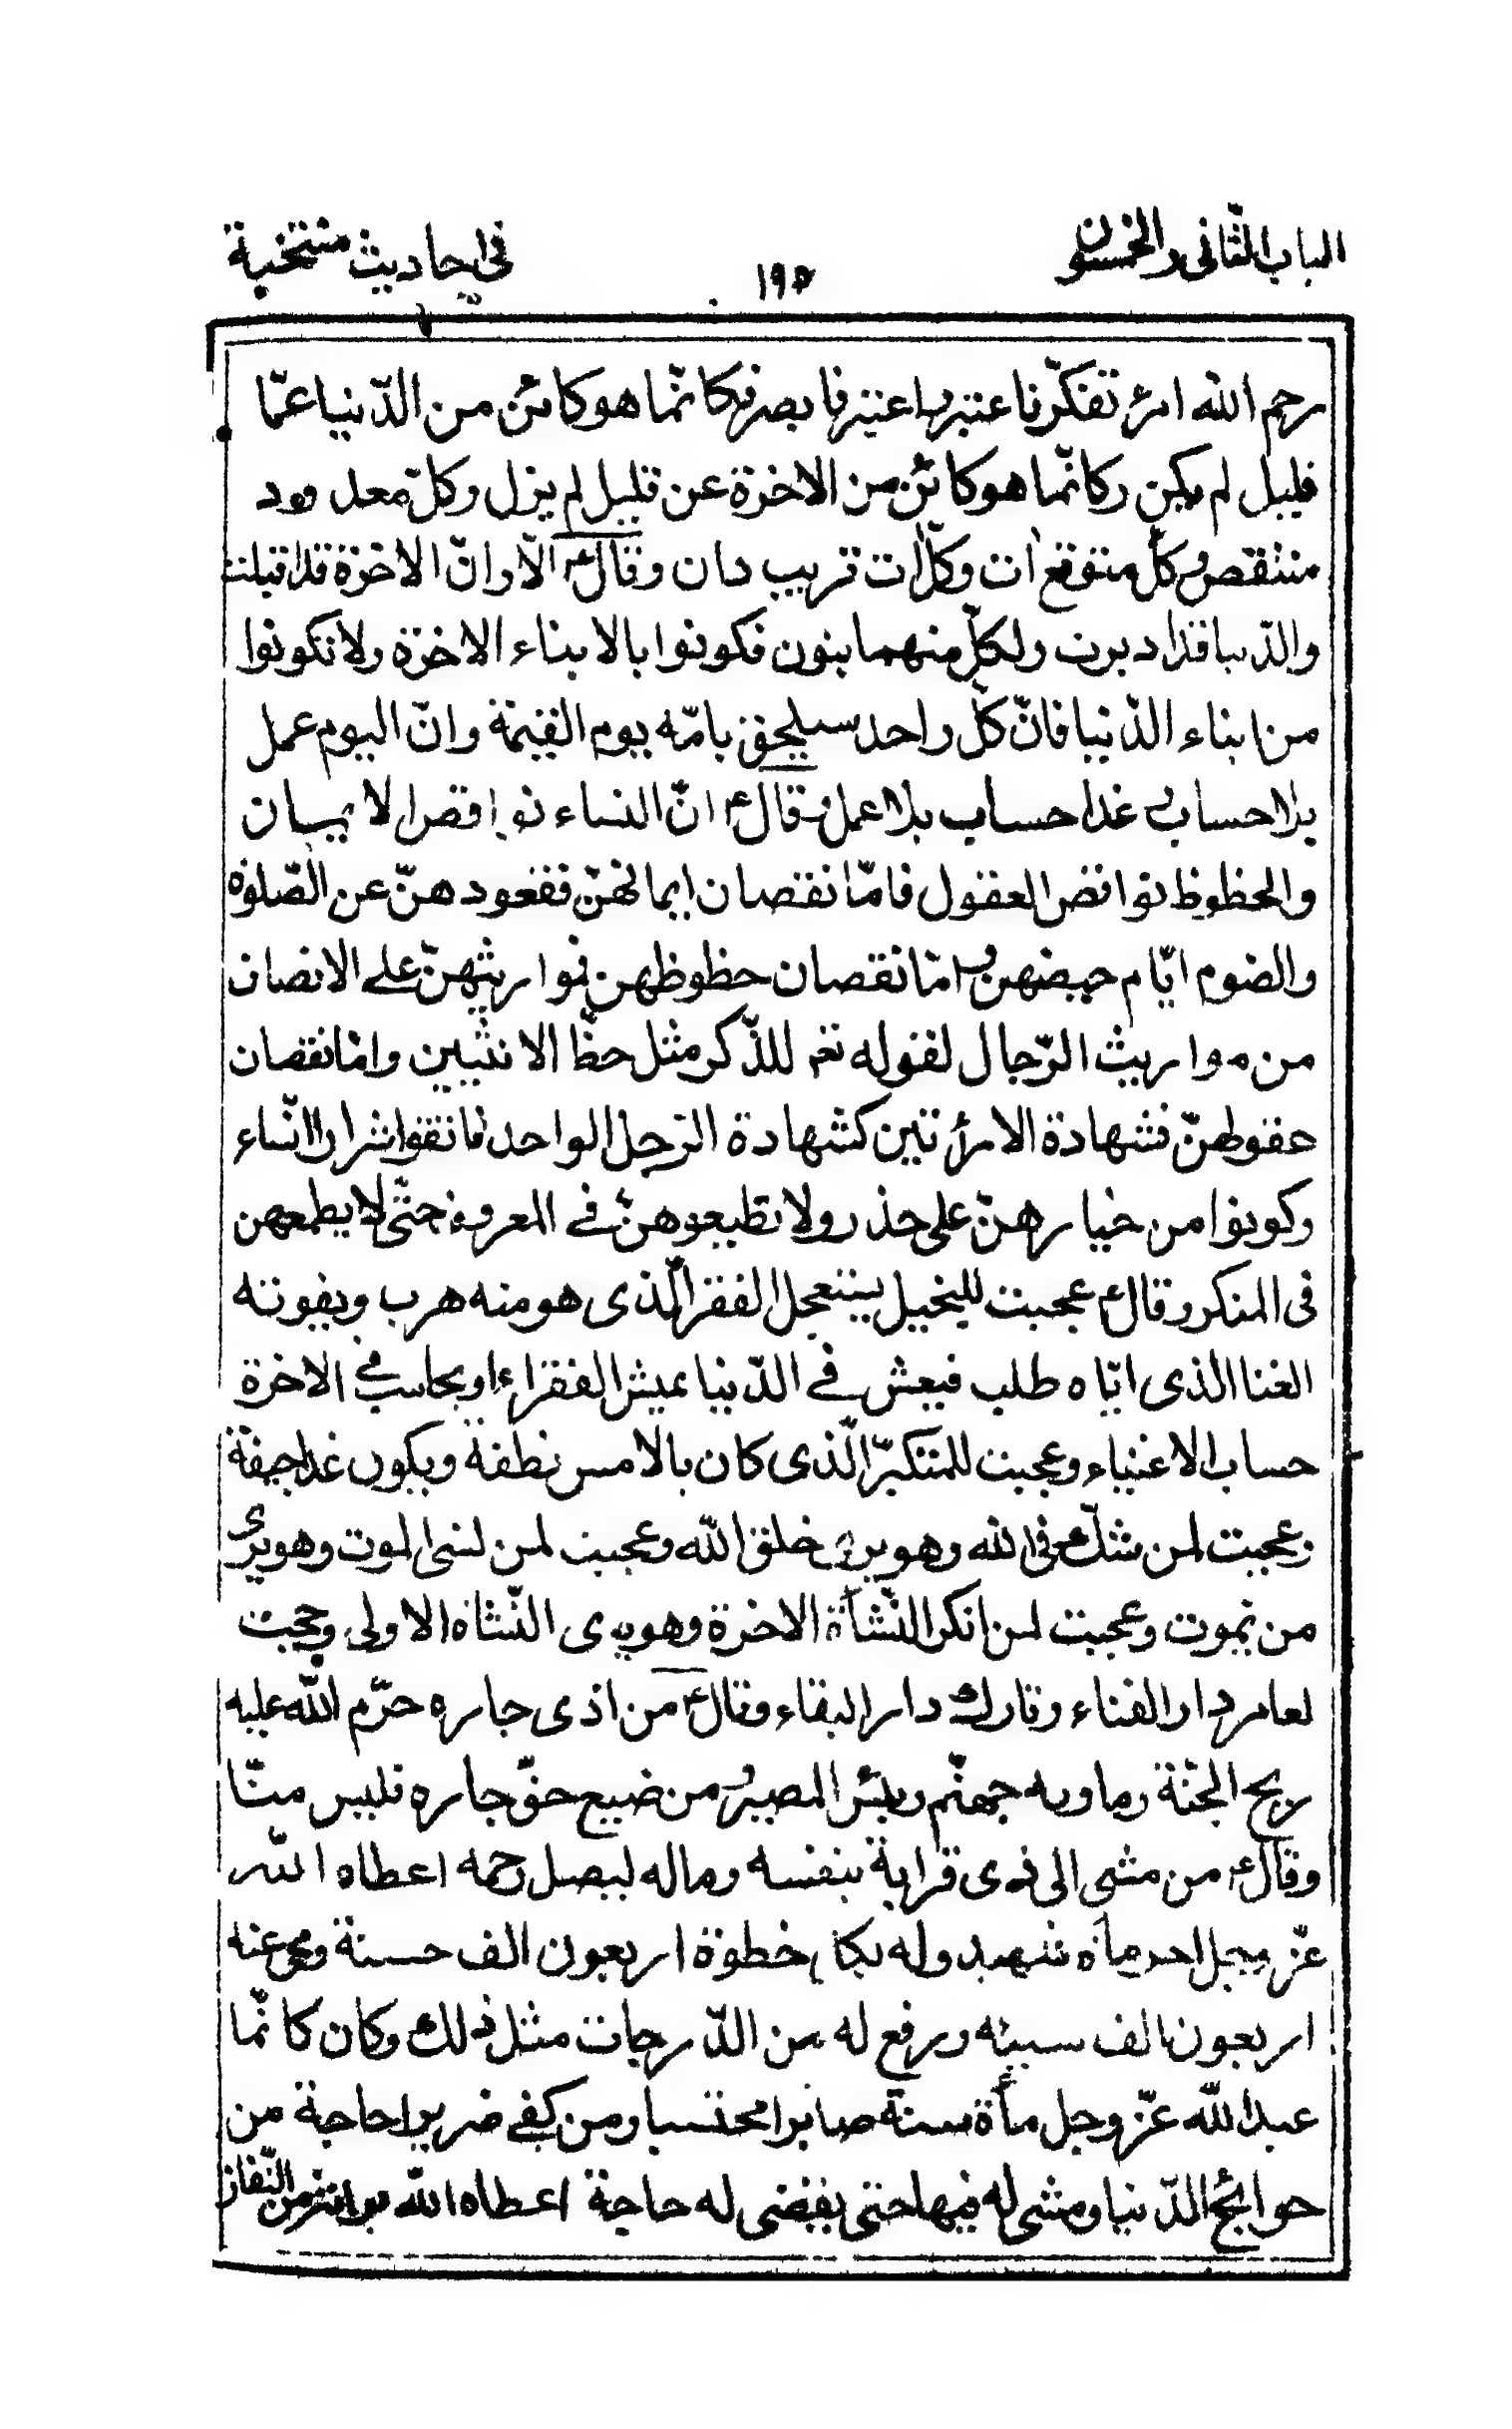 الباب الثّانى والخمسون
١٩٥
فى احاديث منتخبة
رحم الله امرء تفكّر فاعتبر واعتبر فابصر فكانّما هو كائن من الدّنيا عمّا
قليل لم يكن وكانّما هو كائن من الاخرة عن قليل لم يزل وكلّ معدود
منتقص وكلّ متوقع ات وكلّ ات قريب دان وقال ع الّا وانّ الاخرة قد اقبلت
والدّنيا قد ادبرت ولكلّ منهما بنون فكونوا بالابناء الاخرة ولا تكونوا
من ابناء الدّنيا فانّ كلّ واحد سيلحق بامّه يوم القيمة وانّ اليوم عمل
بلا حساب وغدا حساب بلا عمل وقال ع انّ النساء نواقص الايمان
والحظوظ نواقص العقول فامّا نقصان ايمانهنّ فقعودهنّ عن الصّلوة
والصّوم ايّام حيضهن وامّا نقصان حظوظهن فمواريثهنّ على الانصاف
من مواريث الرّجال لقوله تعم للذّكر مثل حظّ الانثيين وامّا نقصان
عقولهنّ فشهادة الامرئتين كشهادة الرّجل الواحد فاتقوا شرار النّساء
وكونوا من خيارهنّ على حذر ولا تطيعوهنّ فى المعروف حتّى لا يطمعهن
فى المنكر وقال ع عجبت للبخيل يستعجل الفقر الّذى هو منه هرب ويفوته
الغنا الّذى ايّاه طلب فيعش فى الدّنيا عيش الفقراء ويحاسب فى الاخرة
حساب الاغنياء وعجبت للمتكبّر الّذى كان بالامس نطفة ويكون غدا جيفة
وعجبت لمن شكّ فى الله وهو يرى خلق الله وعجبت لمن نسى الموت وهو يرى
من يموت وعجبت لمن انكر النّشأة الاخرة وهو يرى النّشاة الاولى وعجبت
لعامر دار الفناء وتارك دار البقاء وقال ع من اذى جاره حرّم الله عليه
ريح الجنّة وماويه جهنّم وبئس المصير ومن ضيع حقّ جاره فليس منّا
وقال ع من مشى الى ذى قرابة بنفسه وماله ليصل رحمه اعطاه الله
عزّ وجل اجر مأة شهيد وله بكل خطوة اربعون الف حسنة ومحى عنه
اربعون الف سيئه ورفع له من الدّرجات مثل ذلك وكان كانّما
عبد الله عزّ وجل مأة سنة صابرا محتسبا ومن كفى ضريرا حاجة من
حوائج الدّنيا ومشى له فيها حتى يقضى له حاجة اعطاه الله براءة من النّفاق